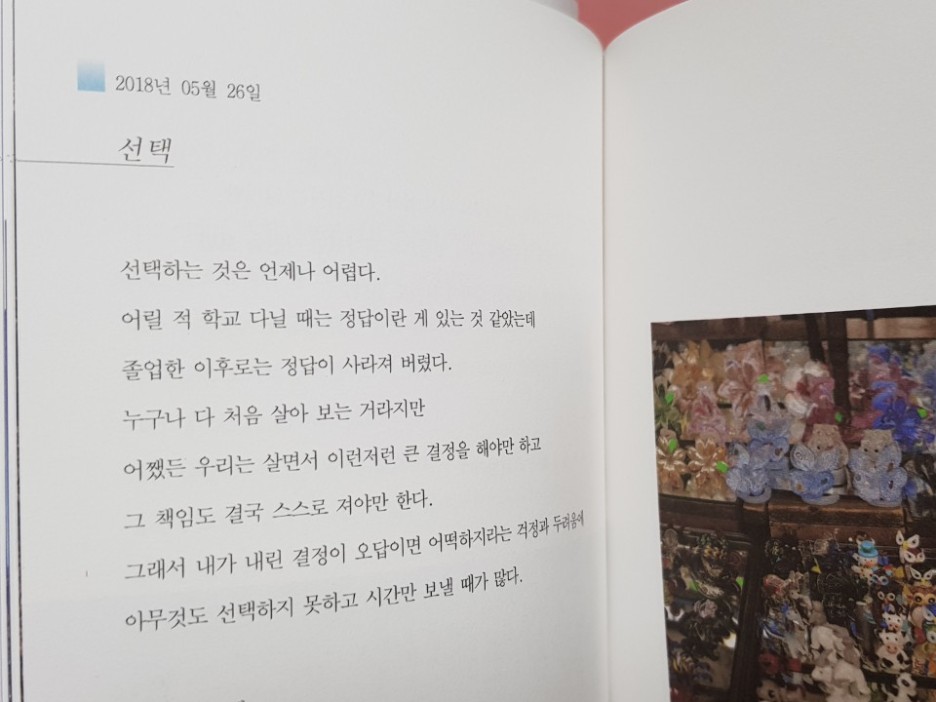 2018년 05월 26일
선택
선택하는 것은 언제나 어렵다.
어릴 적 학교 다닐 때는 정답이란 게 있는 것 같았는데
졸업한 이후로는 정답이 사라져 버렸다.
누구나 다 처음 살아 보는 거라지만
어쨌든 우리는 살면서 이런저런 큰 결정을 해야만 하고
그 책임도 결국 스스로 져야만 한다.
그래서 내가 내린 결정이 오답이면 어떡하지라는 걱정과 두려움에
아무것도 선택하지 못하고 시간만 보낼 때가 많다.